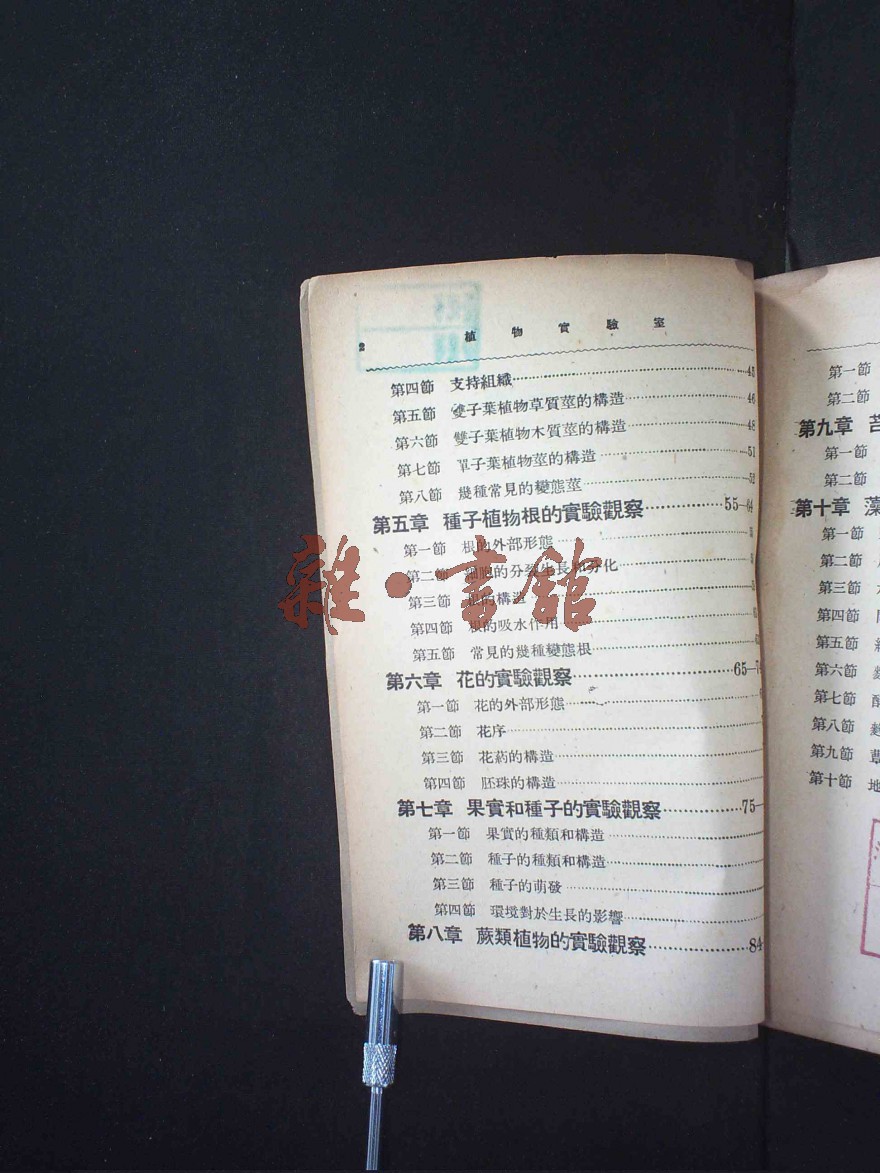 植物實驗室
第四節 支持組織 45
第五節 雙子葉植物草質莖的構造 46
第六節 雙子葉植物木質莖的構造 48
第七節 單子葉植物莖的構造 51
第八節 幾種常見的變態莖 52
第五章 種子植物根的實驗觀察 55—64
第一節 根的外部形態
第二節 細胞的分裂生長和分化
第三節 根的構造
第四節 根的吸水作用
第五節 常見的幾種變態根
第六章 花的實驗觀察 65—7
第一節 花的外部形態
第二節 花序
第三節 花葯的構造
第四節 胚珠的構造
第七章 果實和種子的實驗觀察 75—
第一節 果實的種類和構造
第二節 種子的種類和構造
第三節 種子的萌發
第四節 環境對於生長的影響
第八章 蕨類植物的實驗觀察 84
雜·書館
第一節
第二節
第九章 苔
第一節
第二節
第十章 藻
第一節
第二節
第三節
第四節
第五節
第六節
第七節
第八節
第九節
第十節 地